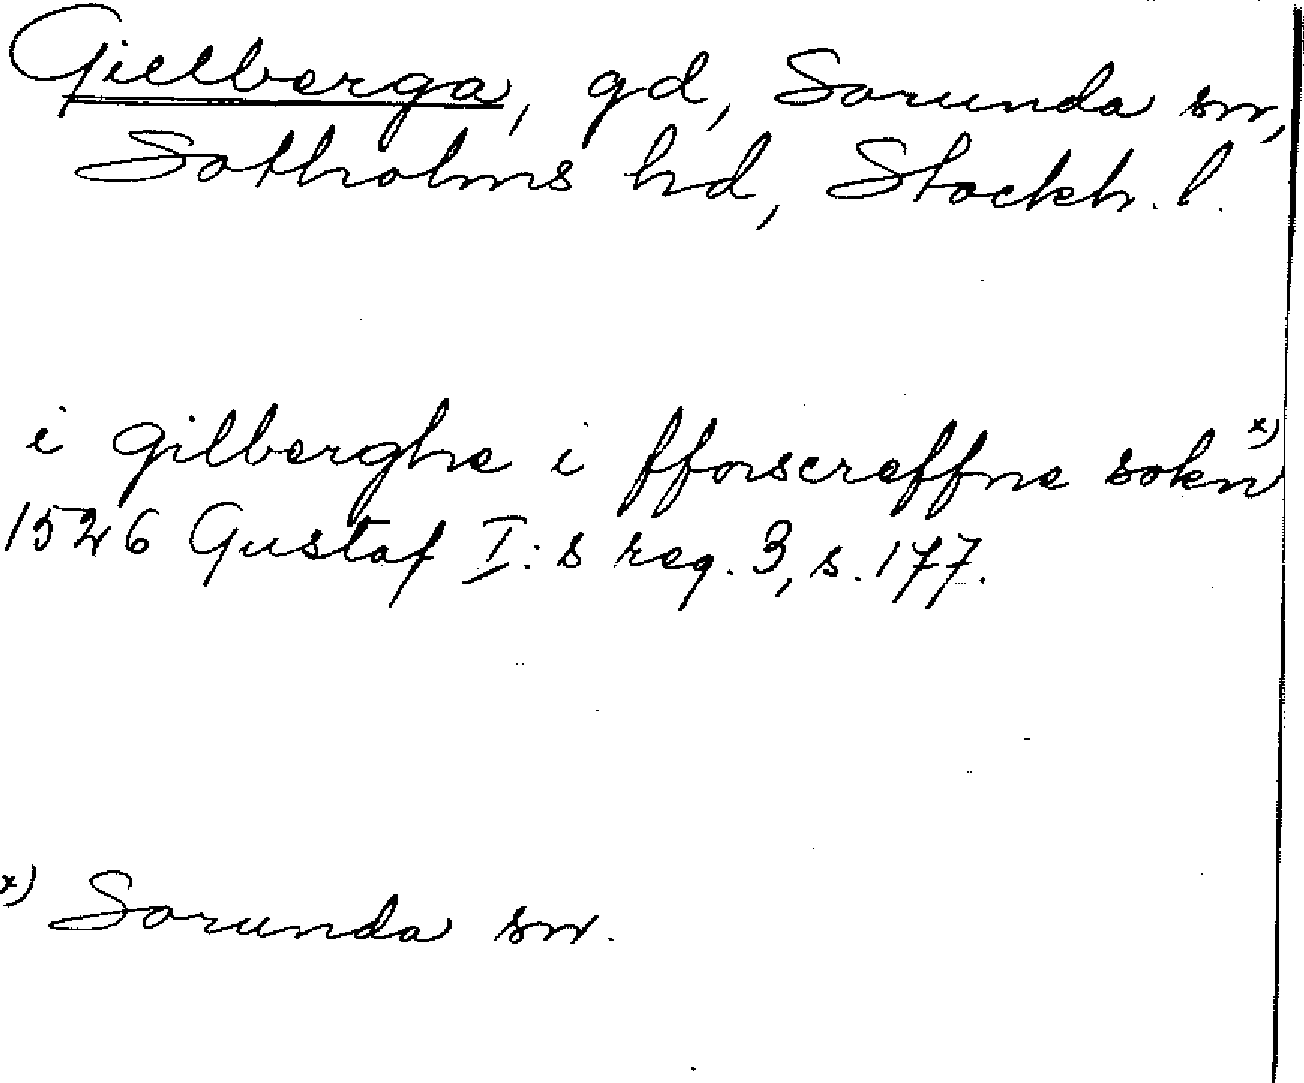 Gillberga, gd, Sorunda sn,
Sotholms hd, Stockh. l.
i gilberghe i fforscreffne sokn x)
1526 Gustaf I:s reg. 3, s. 177.
x) Sorunda sn.